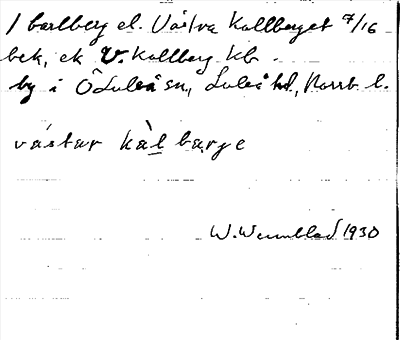 / barlberg el. Västra Kallberget 7/16
bek, ek V. Kallberg kb
by i ÖLuleå sn, Luleå td, Norrb l.
västar kàl barje
W. Wennblad 1930